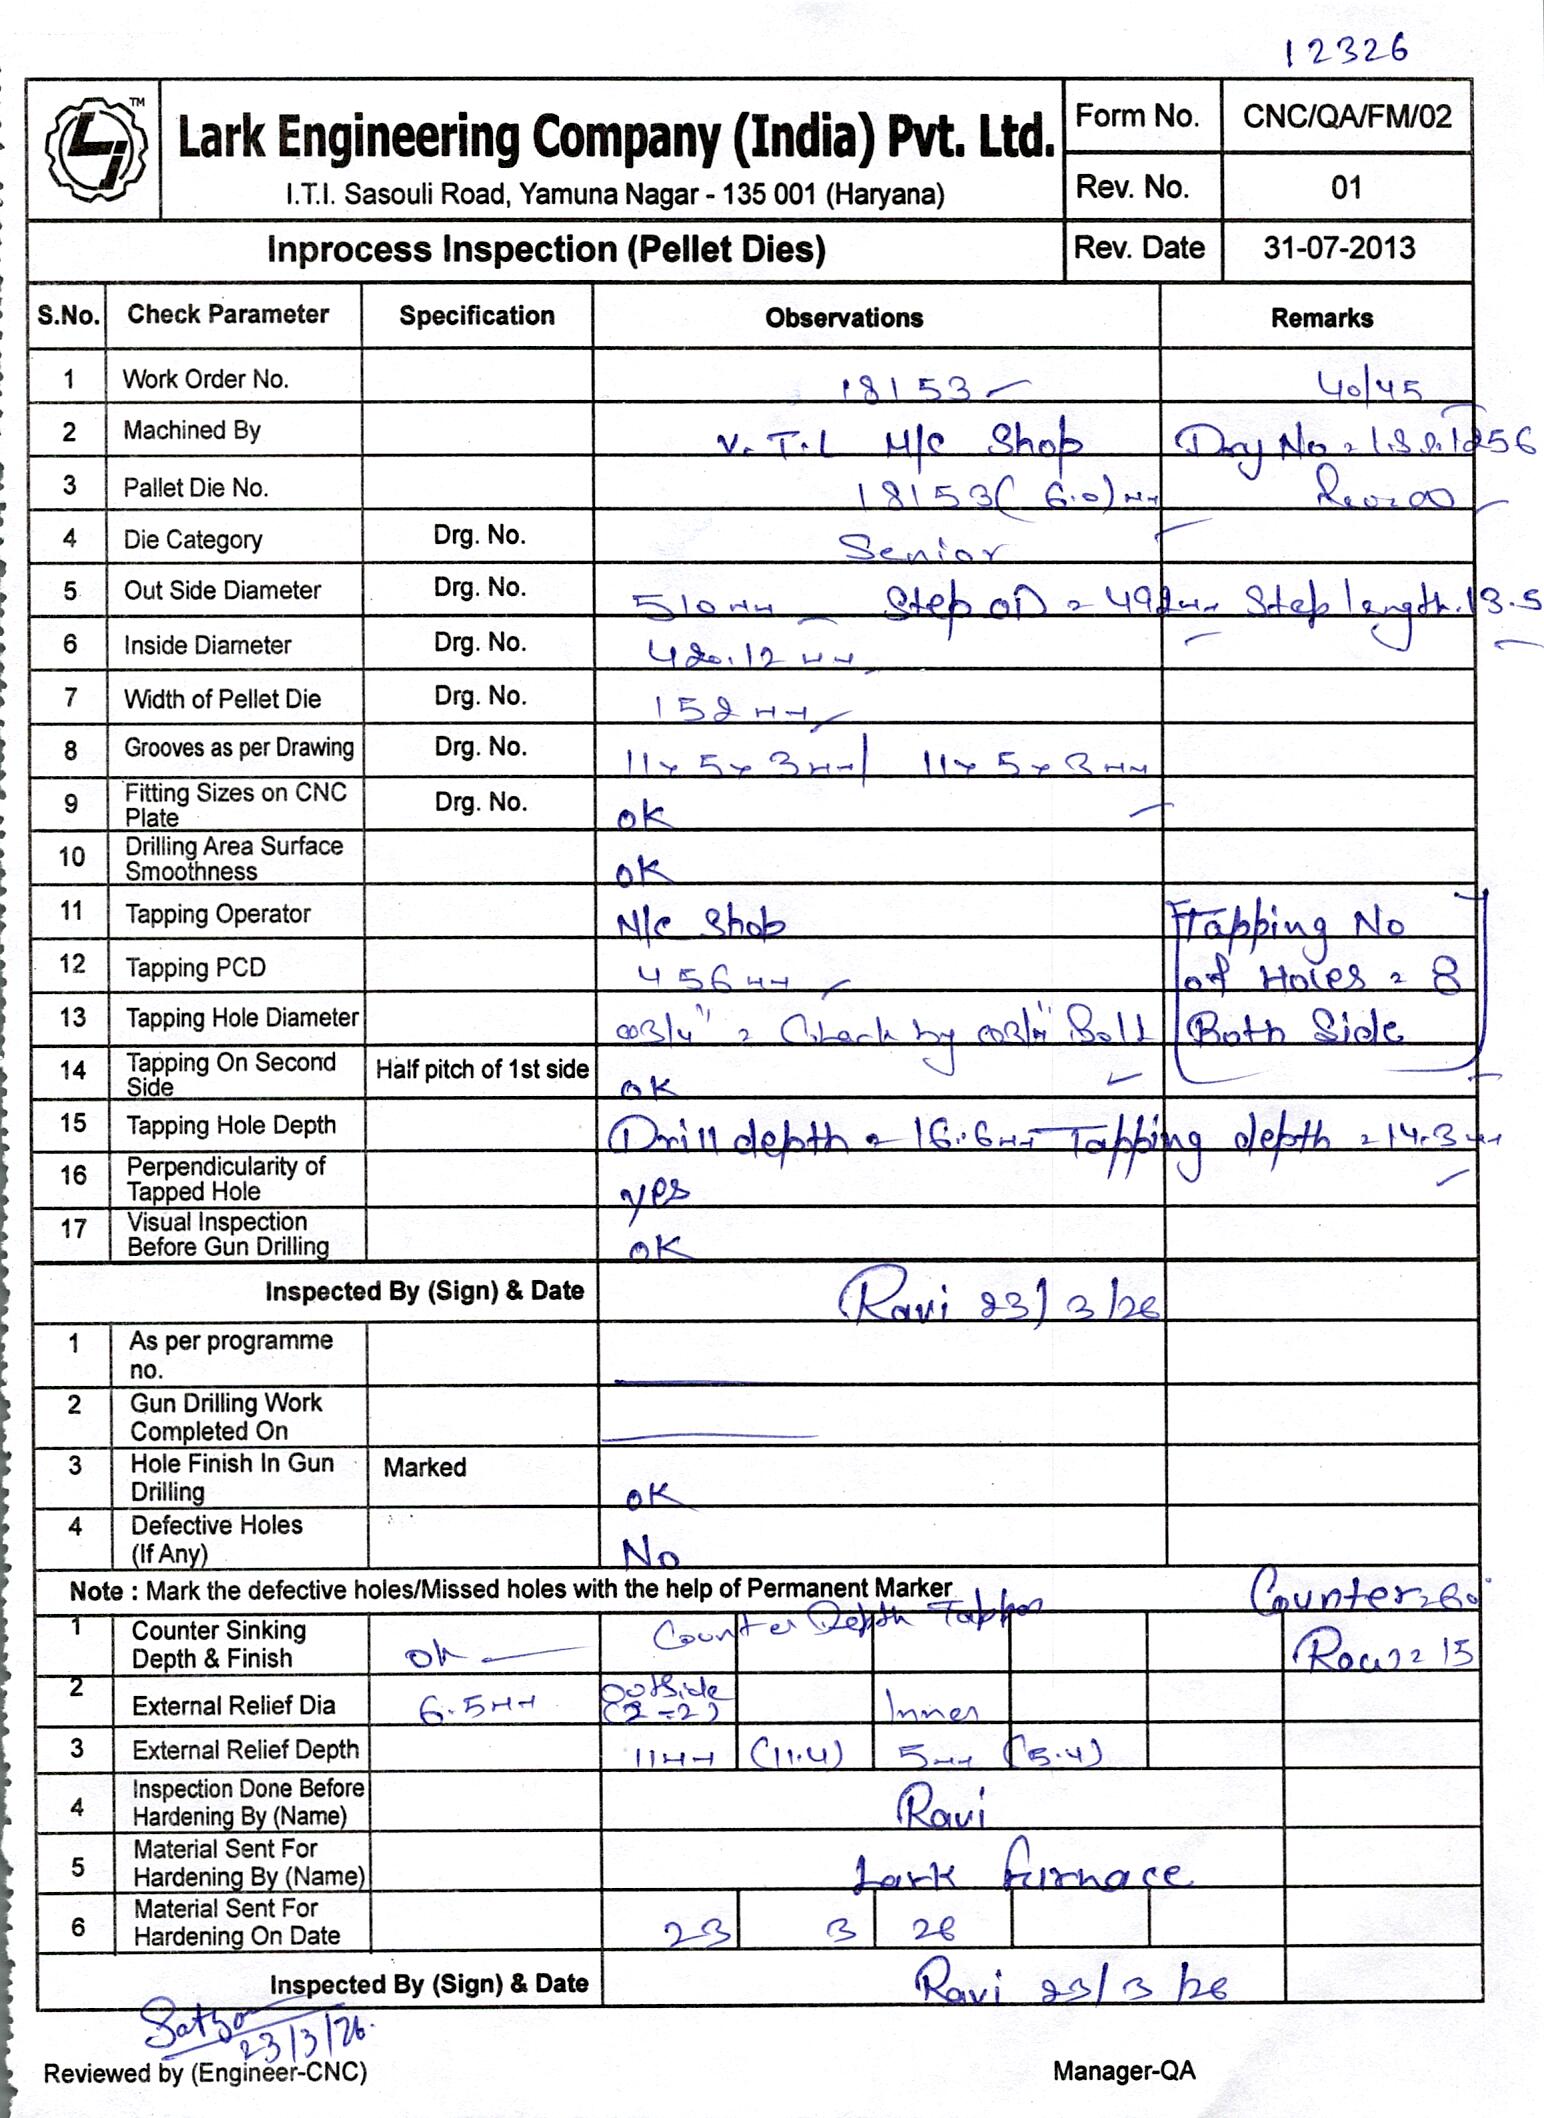 12326
TM
Lark Engineering Company (India) Pvt. Ltd.
I.T.I. Sasouli Road, Yamuna Nagar - 135 001 (Haryana)
Form No. CNC/QA/FM/02
Rev. No. 01
Inprocess Inspection (Pellet Dies) Rev. Date 31-07-2013
S.No. Check Parameter Specification Observations Remarks
1 Work Order No. 18153 40/45
2 Machined By V.T.L M/c Shop Drg No = 1256
3 Pallet Die No. 18153 (6.0) mm Rev=00
4 Die Category Drg. No. Senior
5 Out Side Diameter Drg. No. 510 mm Step OD = 492 mm Step length. 13.5
6 Inside Diameter Drg. No. 420.12 mm
7 Width of Pellet Die Drg. No. 152 mm
8 Grooves as per Drawing Drg. No. 11x5x3mm/ 11x5x3mm
9 Fitting Sizes on CNC Plate Drg. No. ok
10 Drilling Area Surface Smoothness ok
11 Tapping Operator M/c Shop Tapping No
12 Tapping PCD 456 mm of Holes = 8
13 Tapping Hole Diameter 3/4" = Check by 3/4" Bolt Both Side
14 Tapping On Second Side Half pitch of 1st side ok
15 Tapping Hole Depth Drill depth = 16.6mm Tapping depth = 14.3 mm
16 Perpendicularity of Tapped Hole yes
17 Visual Inspection Before Gun Drilling ok
Inspected By (Sign) & Date Ravi 23/3/26
1 As per programme no.
2 Gun Drilling Work Completed On
3 Hole Finish In Gun Drilling Marked ok
4 Defective Holes (If Any) No
Note : Mark the defective holes/Missed holes with the help of Permanent Marker Counter = 60°
1 Counter Sinking Depth & Finish ok Counter Depth Row = 15
2 External Relief Dia 6.5mm Outside (2-2) Inner
3 External Relief Depth 11mm (11.4) 5mm (5.4)
4 Inspection Done Before Hardening By (Name) Ravi
5 Material Sent For Hardening By (Name) Lark furnace
6 Material Sent For Hardening On Date 23 3 26
Inspected By (Sign) & Date Ravi 23/3/26
23/3/26.
Reviewed by (Engineer-CNC) Manager-QA